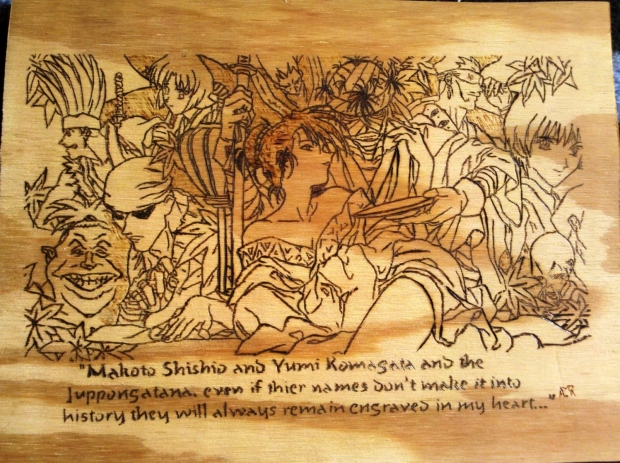 "Makoto Shishio and Yumi Komagata and the
Juppongatana. even if thier names don't make it into
history they will always remain engraved in my heart..."